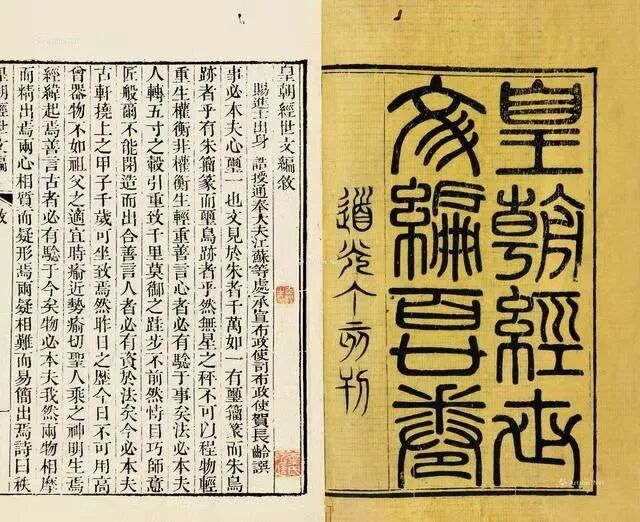 皇朝經世
文編百廿卷
道光丁亥刊
皇朝經世文編敘
賜進士出身 誥授通奉大夫江蘇等處承宣布政使司布政使賀長齡譔
事必本夫心璽一也文見於朱者千萬如一有璽籀篆而朱鳥
跡者乎有朱籀篆而璽鳥跡者乎然無星之秤不可以程物輕
重生權衡非權衡生輕重善言心者必有驗于事矣法必本夫
人轉五寸之轂引重致千里莫御之跬步不前然恃目巧師意
匠般爾不能閉造而出合善言人者必有資於法矣今必本夫
古軒撓上之甲子千歲可坐致焉然昨日之歷今日不可用高
曾器物不如祖父之適宜時瘉近勢瘉切聖人乘之神明生焉
經緯起焉善言古者必有驗于今矣物必本夫我然兩物相摩
而精出焉兩心相質而疑形焉兩疑相難而易簡出焉詩曰秩
皇朝經世文編 敘